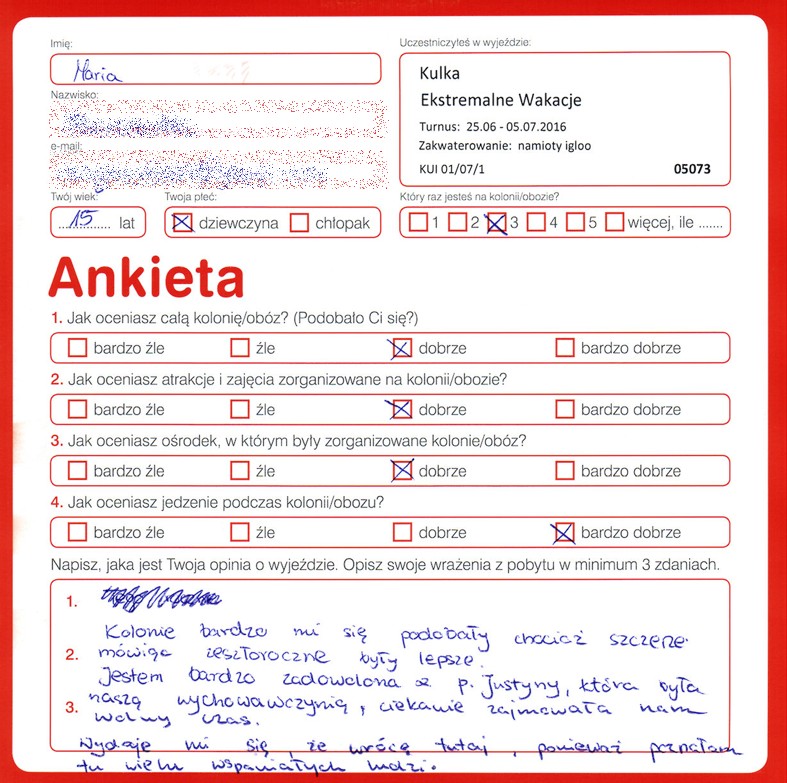 Imię:
Maria
Uczestniczyłeś w wyjeździe:
Kulka
Ekstremalne Wakacje
Turnus: 25.06 - 05.07.2016
Zakwaterowanie: namioty igloo
KUI 01/07/1 05073
Nazwisko:
e-mail:
Twój wiek:
15 lat
Twoja płeć:
dziewczyna chłopak
Który raz jesteś na kolonii/obozie?
1 2 3 4 5 więcej, ile .......
Ankieta
1. Jak oceniasz całą kolonię/obóz? (Podobało Ci się?)
bardzo źle źle dobrze bardzo dobrze
2. Jak oceniasz atrakcje i zajęcia zorganizowane na kolonii/obozie?
bardzo źle źle dobrze bardzo dobrze
3. Jak oceniasz ośrodek, w którym były zorganizowane kolonie/obóz?
bardzo źle źle dobrze bardzo dobrze
4. Jak oceniasz jedzenie podczas kolonii/obozu?
bardzo źle źle dobrze bardzo dobrze
Napisz, jaka jest Twoja opinia o wyjeździe. Opisz swoje wrażenia z pobytu w minimum 3 zdaniach.
1.
Kolonie bardzo mi się podobały chociaż szczerze
2. mówiąc zeszłoroczne były lepsze.
Jestem bardzo zadowolona z p. Justyny, która była
3. naszą wychowawczynią, ciekawie zajmowała nam
wolny czas.
Wydaje mi się, że wrócę tutaj, ponieważ poznałam
tu wielu wspaniałych ludzi.